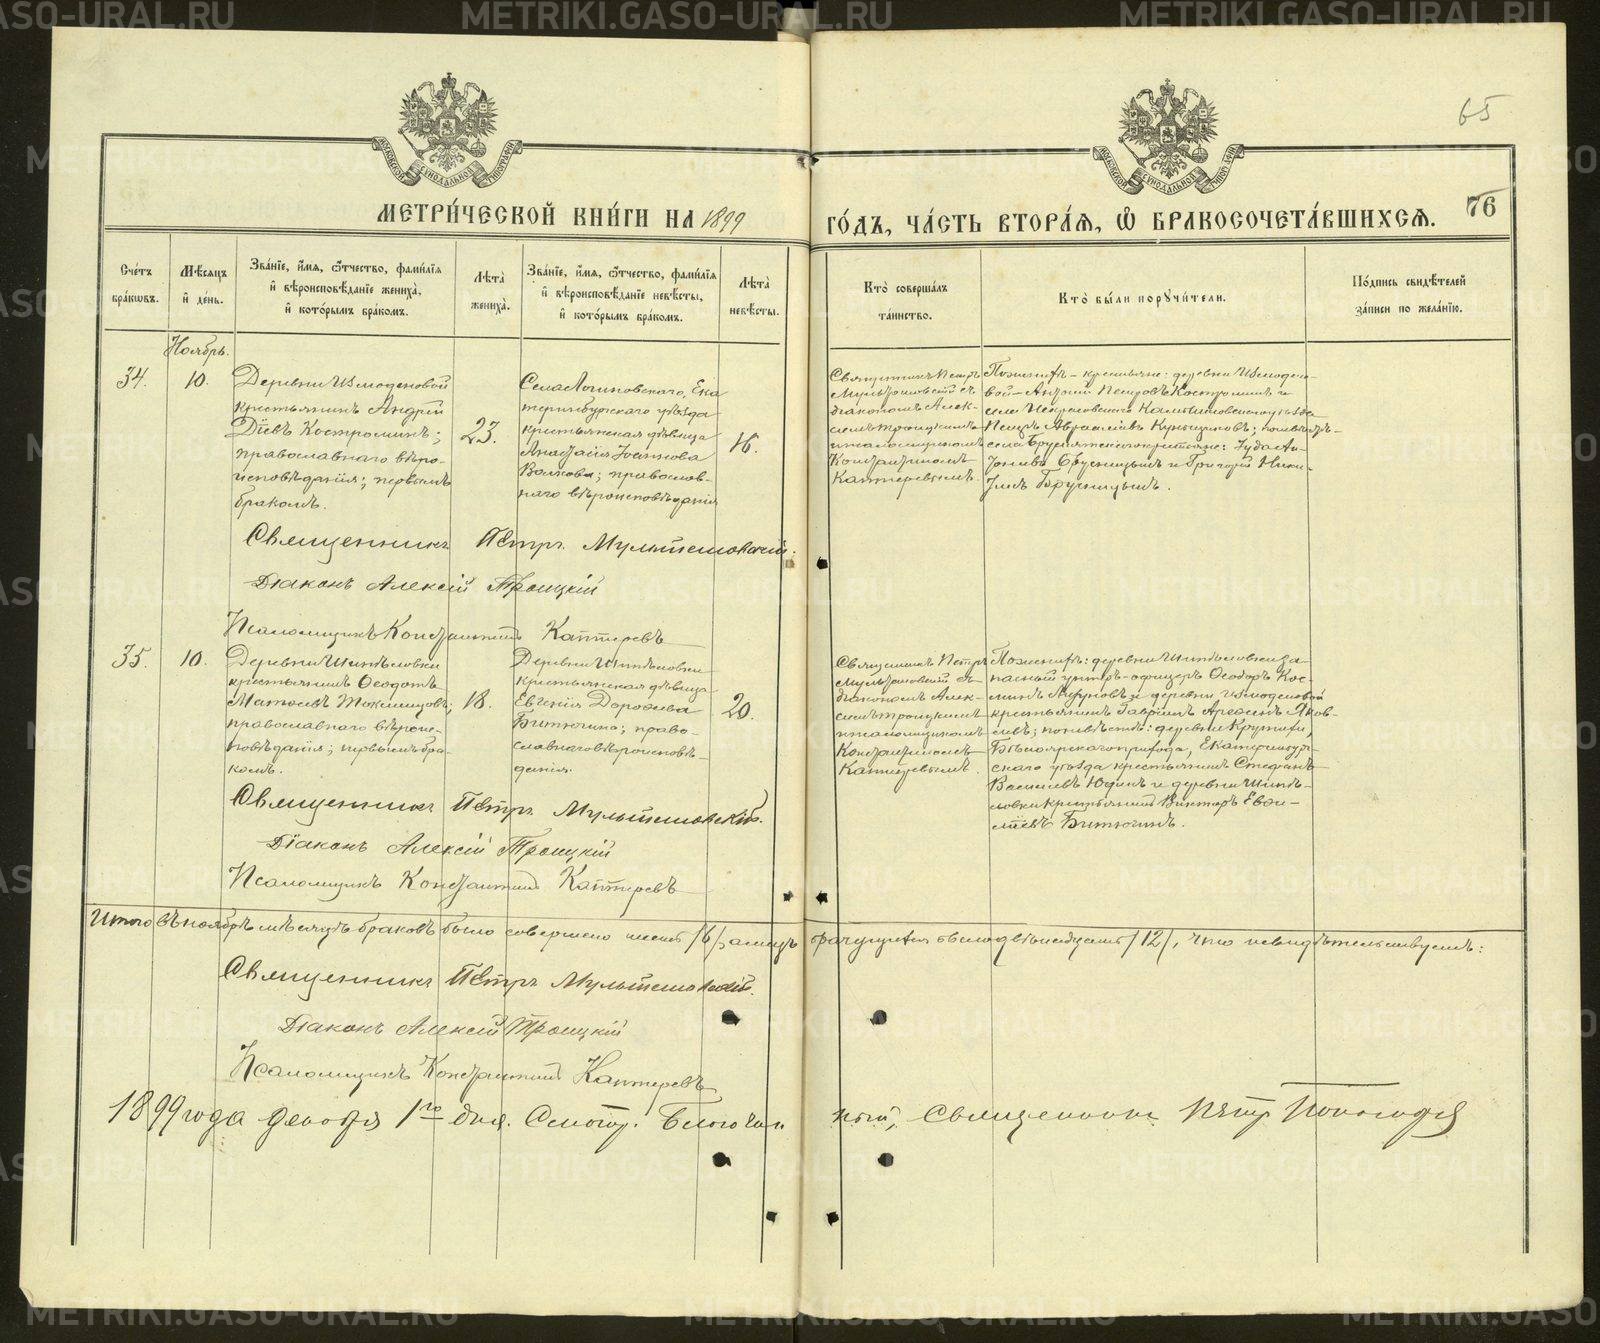 65
МЕТРИ́ЧЕСКОЙ КНИ́ГИ НА 1899
ГО́ДЪ, ЧА́СТЬ ВТОРА́Я, Ѿ БРАКОСОЧЕТА́ВШИХСЯ.
76
Сче́тъ бра́кѡвъ.
Мѣ́сяцъ и҆ де́нь.
Зва́нїе, и҆́мя, ѻ҆́тчество, фами́лїя и҆ вѣроисповѣ́данїе жениха̀, и҆ кото́рымъ бра́комъ.
Лѣ́та̀ жениха̀.
Зва́нїе, и҆́мя, ѻ҆́тчество, фами́лїя и҆ вѣроисповѣ́данїе невѣ́сты, и҆ кото́рымъ бра́комъ.
Лѣ́та̀ невѣ́сты.
Кто̀ соверша́лъ та́инство.
Кто̀ бы́ли порꙋчи́тели.
По́дпись свидѣ́телей за́писи по жела́нїю.
Ноябрь.
34.
10.
Деревни Измоденовой
крестьянинъ Андрей
Діевъ Костроминъ;
православнаго вѣро-
исповѣданія; первымъ
бракомъ.
23.
Села Логиновскаго, Ека
теринбургскаго уѣзда
крестьянская дѣвица
Анастасія
Волкова; православ-
наго вѣроисповѣданія
16.
Священникъ Петръ
Мультановскій съ
діакономъ Алек-
сѣемъ Троицкимъ
и псаломщикомъ
Константиномъ
Каптеревымъ.
По женихѣ – крестьяне: деревни Измодено-
вой – Петровъ Костроминъ и
села Некрасовскаго Камышловскаго уѣзда
по невѣстѣ –
села Бруснятскаго крестьяне: Іуда
Брусницынъ и Григорій Ники-
Брусницынъ.
Священникъ Петръ Мультановскій.
Діаконъ Алексій Троицкій
Псаломщикъ Константинъ Каптеревъ
35.
10.
Деревни
крестьянинъ Ѳеодотъ
Матѳіевъ
православнаго вѣроис-
повѣданія; первымъ бра-
комъ.
18.
Деревни
крестьянская дѣвица
Евгенія Дороѳеева
Битюгина; право-
славнаго вѣроисповѣ-
данія.
20.
Священникъ Петръ
Мультановскій съ
діакономъ Алек-
сѣемъ Троицкимъ
псаломщикомъ
Константиномъ
Каптеревымъ.
По женихѣ: деревни за-
пасный унтеръ-офицеръ Ѳеодоръ Кос-
минъ и деревни Измоденовой
крестьянинъ Гавріилъ Яков-
левъ; по невѣстѣ: деревни
Бѣлоярскаго прихода, Екатеринбург-
скаго уѣзда крестьянинъ Стефанъ
Васильевъ Юдинъ и деревни
крестьянинъ Викторъ Евѳи-
міевъ Битюгинъ.
Священникъ Петръ Мультановскій.
Діаконъ Алексій Троицкій
Псаломщикъ Константинъ Каптеревъ
Итого въ ноябрѣ мѣсяцѣ браковъ было совершено шесть /6/, а лицъ брачущихся было двѣнадцать /12/, что и свидѣтельствуемъ:
Священникъ Петръ Мультановскій.
Діаконъ Алексій Троицкій
Псаломщикъ Константинъ Каптеревъ
1899 года декабря 1го дня. Смотр. Благочин
ный, священникъ Петръ